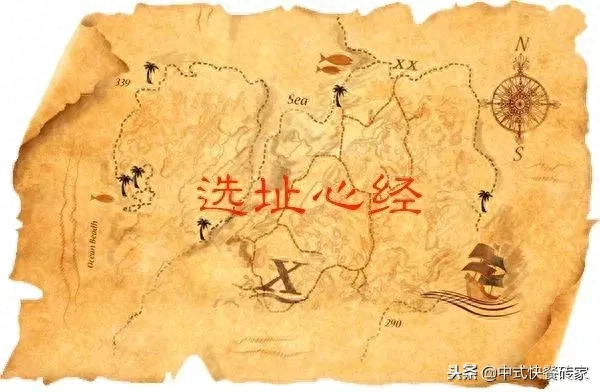 N
XX
339
Sea
S
选址心经
Ocean Beadh
X
290
头条@中式快餐砖家